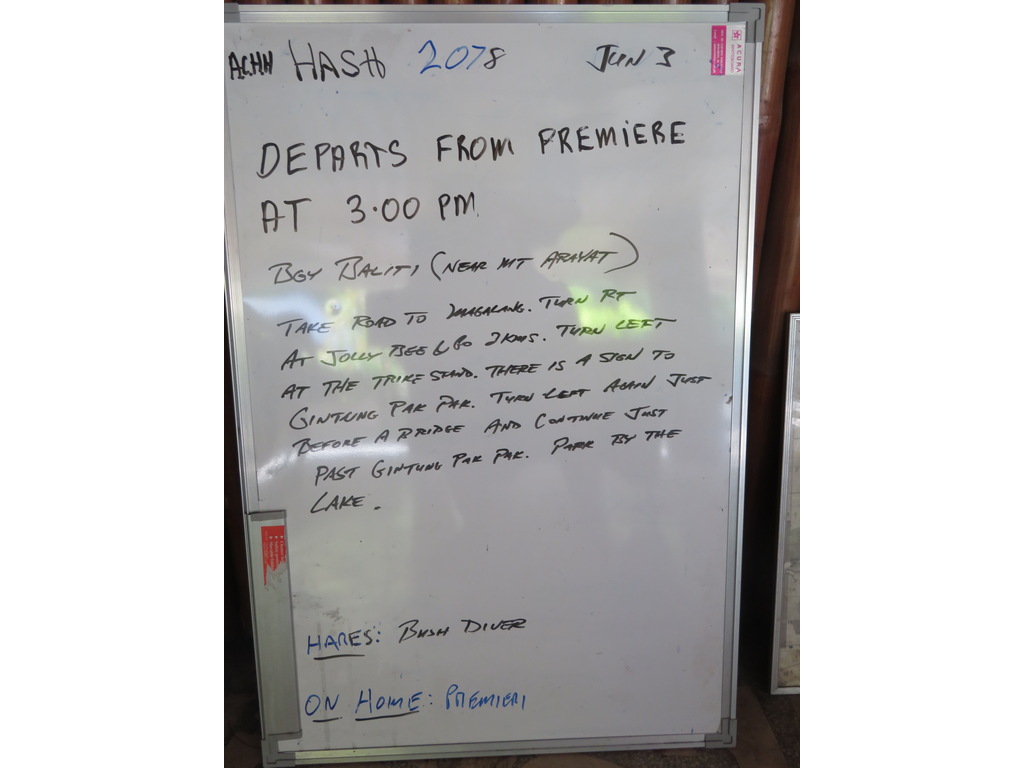 ACHH HASH 2078 JUN 3
ACURA
DEPARTS FROM PREMIERE
AT 3.00 PM
BGY BALITI (NEAR MT ARAYAT)
TAKE ROAD TO MAGALANG. TURN RT
AT JOLLY BEE & GO 2 KMS. TURN LEFT
AT THE TRIKE STAND. THERE IS A SIGN TO
GINTUNG PAK PAK. TURN LEFT AGAIN JUST
BEFORE A BRIDGE AND CONTINUE JUST
PAST GINTUNG PAK PAK. PARK BY THE
LAKE.
HARES: BUSH DIVER
ON HOME: PREMIERI